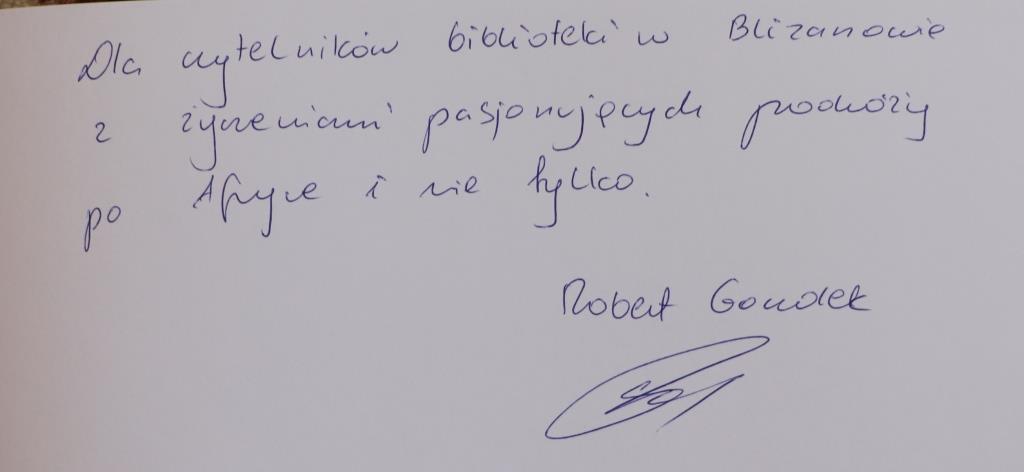 Dla czytelników biblioteki w Blizanowie
z życzeniami pasjonujących podróży
po Afryce i nie tylko.
Robert Gondek